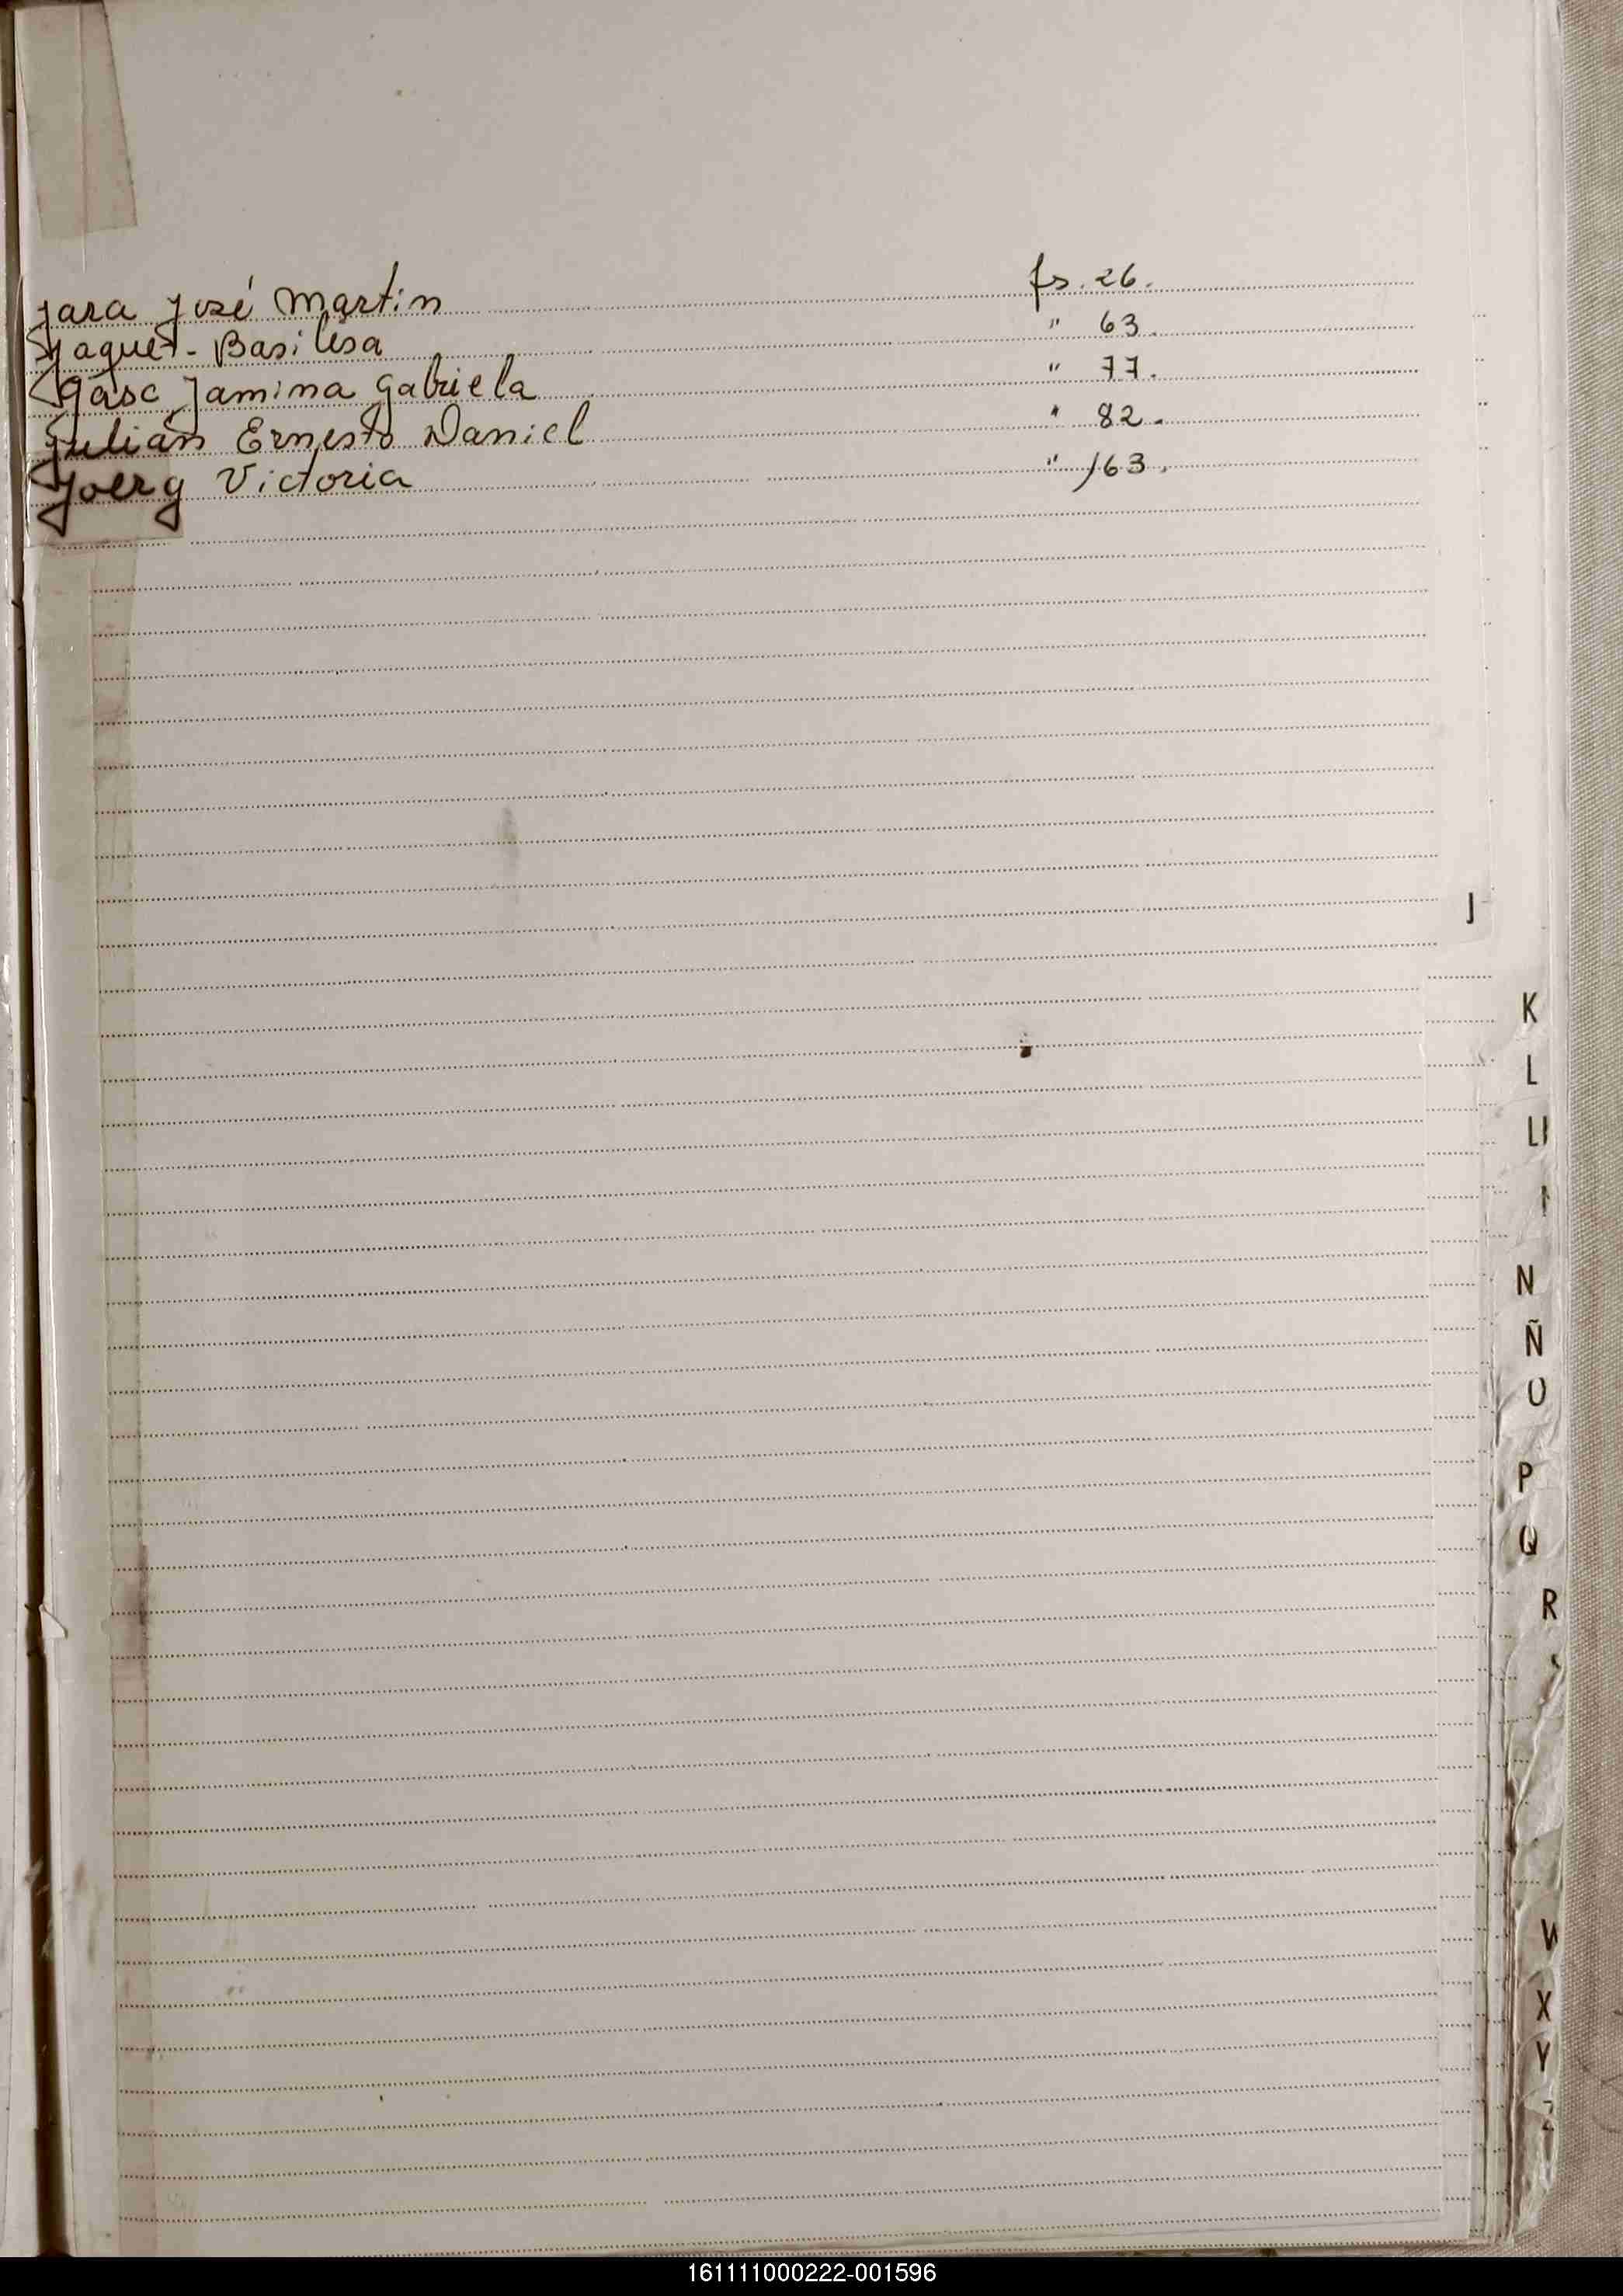 Jara José Martin fs. 26.
Jaquet - Basilisa " 63.
Gasc Jamina Gabriela " 77.
Julián Ernesto Daniel " 82.
Joerg Victoria " 163.
J
K
L
Ll
N
Ñ
O
P
Q
R
W
X
Y
Z
161111000222-001596